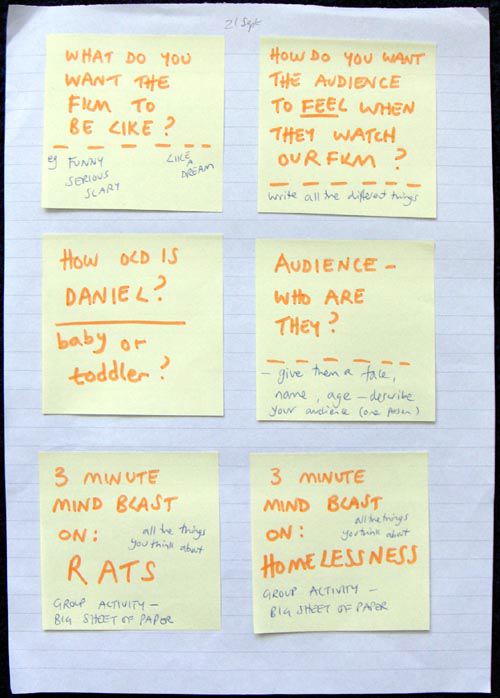 21 Sept
WHAT DO YOU
WANT THE
FILM TO
BE LIKE?
eg FUNNY
SERIOUS
SCARY
LIKE
A
DREAM
HOW DO YOU WANT
THE AUDIENCE
TO FEEL WHEN
THEY WATCH
OUR FILM ?
write all the different things
HOW OLD IS
DANIEL?
baby or
toddler?
AUDIENCE –
WHO ARE
THEY?
– give them a face,
name, age – describe
your audience (one person)
3 MINUTE
MIND BLAST
ON:
all the things
you think about
RATS
GROUP ACTIVITY –
BIG SHEET OF PAPER
3 MINUTE
MIND BLAST
ON:
all the things
you think about
HOMELESSNESS
GROUP ACTIVITY –
BIG SHEET OF PAPER